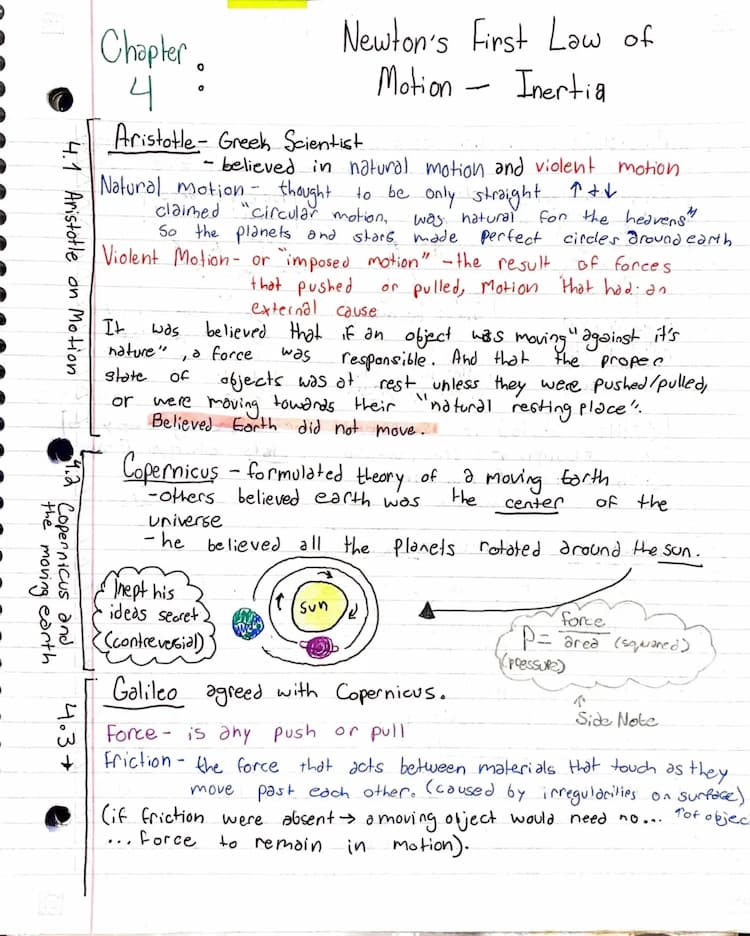 Chapter 4:
Newton's First Law of
Motion – Inertia
4.1 Aristotle on Motion
Aristotle – Greek Scientist
- believed in natural motion and violent motion
Natural motion – thought to be only straight ↑ + ↓
claimed "circular motion, was natural for the heavens"
So the planets and stars made perfect circles around earth
Violent Motion – or "imposed motion" – the result of forces
that pushed or pulled, Motion that had an
external cause
It was believed that if an object was moving "against it's
nature", a force was responsible. And that the proper
state of objects was at rest unless they were pushed/pulled,
or were moving towards their "natural resting place".
Believed Earth did not move.
4.2 Copernicus and
the moving earth
Copernicus – formulated theory of a moving Earth
- others believed earth was the center of the
universe
- he believed all the planets rotated around the sun.
kept his
ideas secret
(contreversial)
sun
P = force / area (squared)
(pressure)
↑
Side Note
4.3 →
Galileo agreed with Copernicus.
Force – is any push or pull
Friction – the force that acts between materials that touch as they
move past each other. (caused by irregularities on surface)
↑ of objec
(if friction were absent → a moving object would need no...
... force to remain in motion).